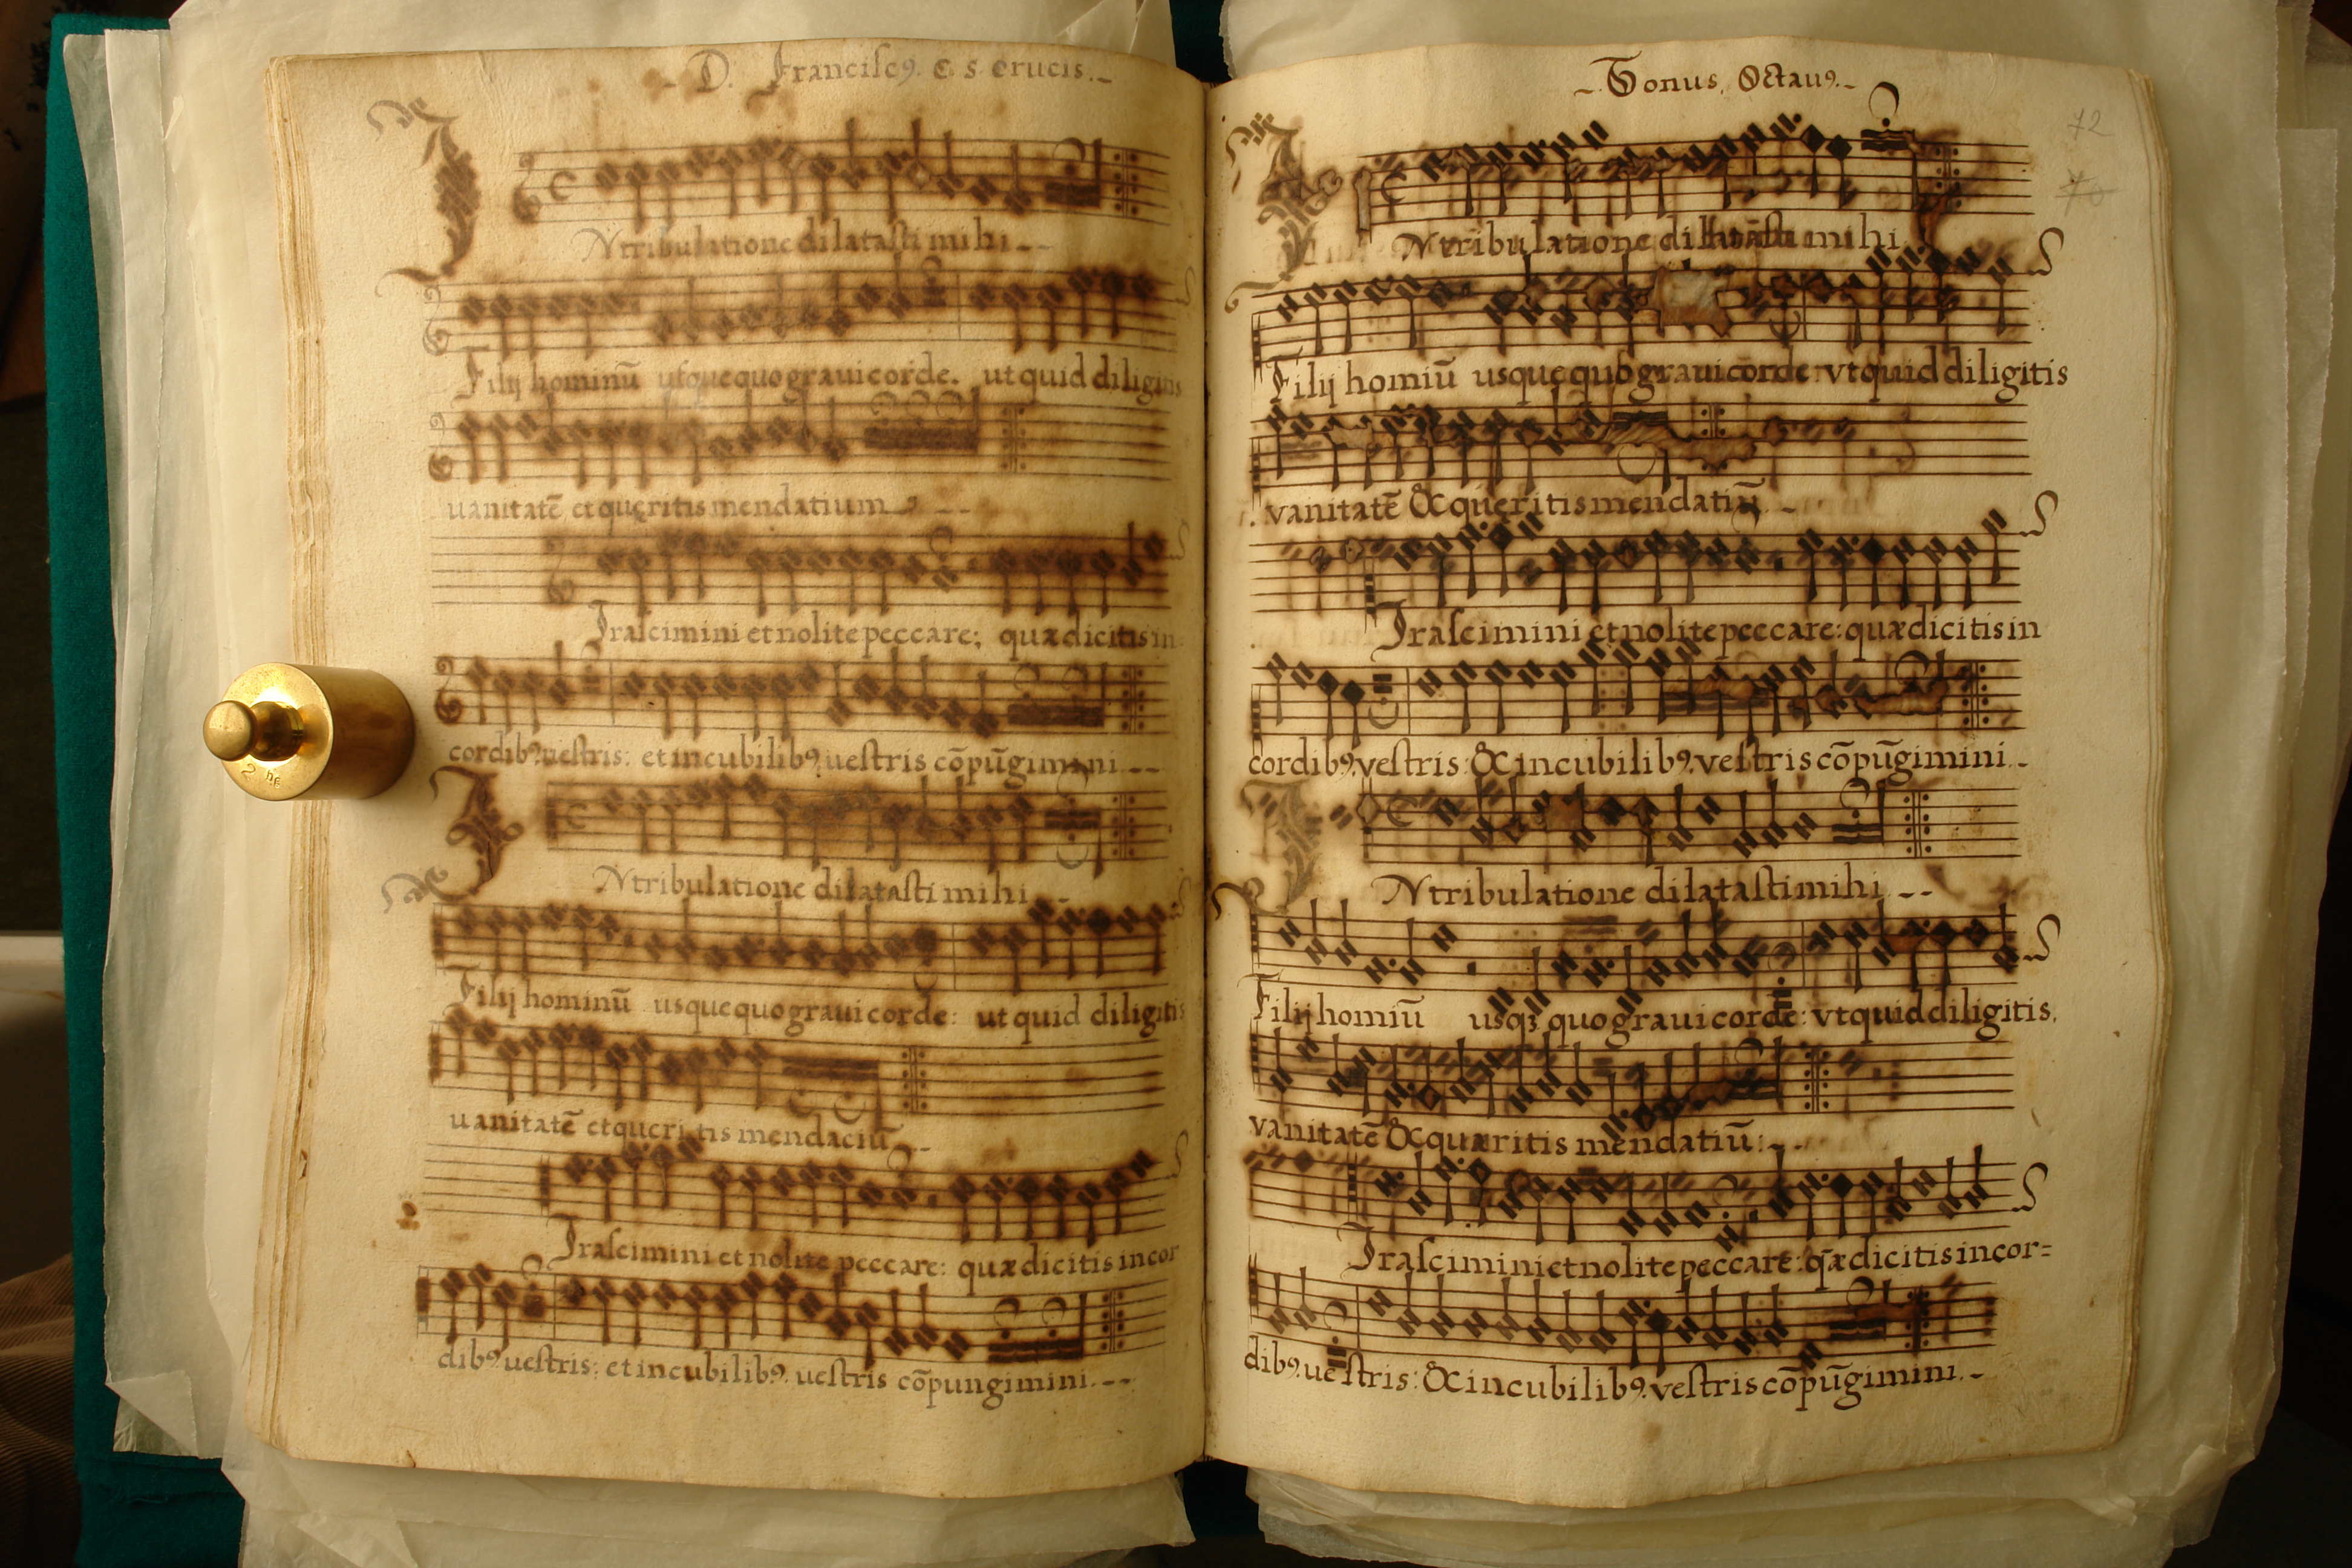 D. Franciscꝰ. C. S. Crucis.
Ntribulatione dilatasti mihi
Filij hominū usquequo graui corde. ut quid diligitis
uanitatē et quęritis mendatium
Irascimini et nolite peccare; quæ dicitis in
cordibꝰ uestris: et in cubilibꝰ. uestris cōpūgimini
Ntribulatione dilatasti mihi
Filij hominū usquequo graui corde: ut quid diligitis
uanitatē et queritis mendaciū
Irascimini et nolite peccare: quæ dicitis in cor
dibꝰ uestris: et in cubilibꝰ. uestris cōpungimini.
Tonus. Octauꝰ.
72
70
Ntribulatione dilatasti mihi
Filij homiū usquequo graui corde: vt quid diligitis
vanitatē & quęritis mendatiū
Irascimini et nolite peccare: quæ dicitis in
cordibꝰ. vestris: & in cubilibꝰ. vestris cōpūgimini.
Ntribulatione dilatasti mihi
Filij homiū usqꝫ quo graui corde: vt quid diligitis.
vanitatē & quæritis mendatiū:
Irascimini et nolite peccare: q̄æ dicitis in cor=
dibꝰ. uestris: & in cubilibꝰ. vestris cōpūgimini.